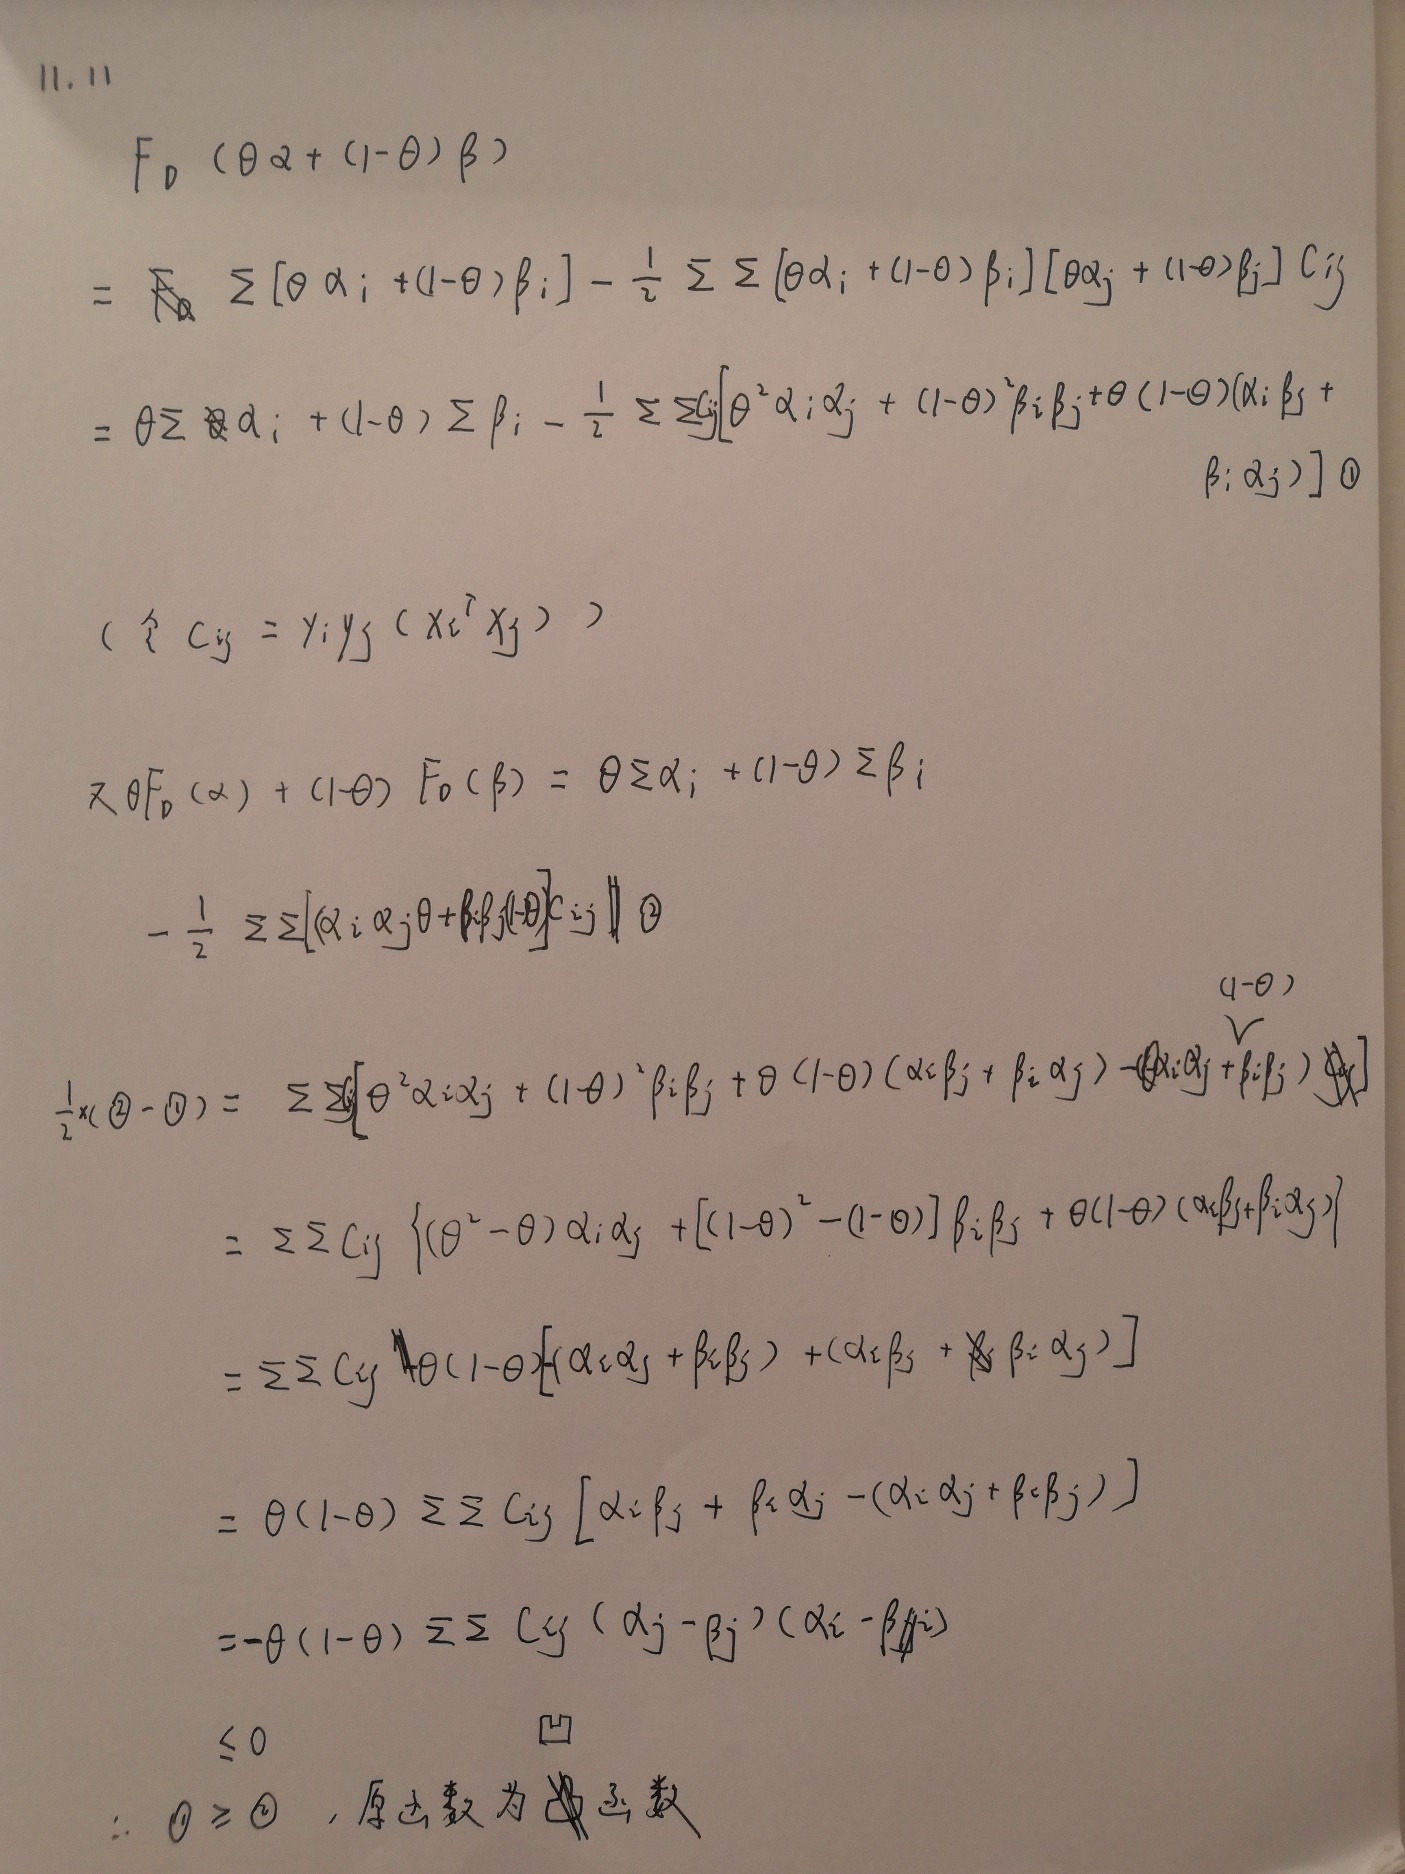 11.11
F_D (θα + (1-θ) β)
= Σ [θ α_i + (1-θ) β_i] - 1/2 Σ Σ [θα_i + (1-θ) β_i] [θα_j + (1-θ) β_j] C_ij
= θΣ α_i + (1-θ) Σ β_i - 1/2 Σ Σ C_ij [θ² α_i α_j + (1-θ)² β_i β_j + θ (1-θ) (α_i β_j +
β_i α_j)] ①
(令 C_ij = y_i y_j (x_i^T x_j))
又 θF_D (α) + (1-θ) F_D (β) = θ Σ α_i + (1-θ) Σ β_i
- 1/2 Σ Σ [(α_i α_j θ + β_i β_j (1-θ)] C_ij ②
(1-θ)
1/2 × (② - ①) = Σ Σ C_ij [θ² α_i α_j + (1-θ)² β_i β_j + θ (1-θ) (α_i β_j + β_i α_j) - (θ α_i α_j + β_i β_j)]
= Σ Σ C_ij {(θ² - θ) α_i α_j + [(1-θ)² - (1-θ)] β_i β_j + θ(1-θ) (α_i β_j + β_i α_j)}
= Σ Σ C_ij θ(1-θ) [-(α_i α_j + β_i β_j) + (α_i β_j + β_i α_j)]
= θ(1-θ) Σ Σ C_ij [α_i β_j + β_i α_j - (α_i α_j + β_i β_j)]
= -θ(1-θ) Σ Σ C_ij (α_j - β_j) (α_i - β_i)
≤ 0
∴ ① ≥ ② , 原函数为凹函数